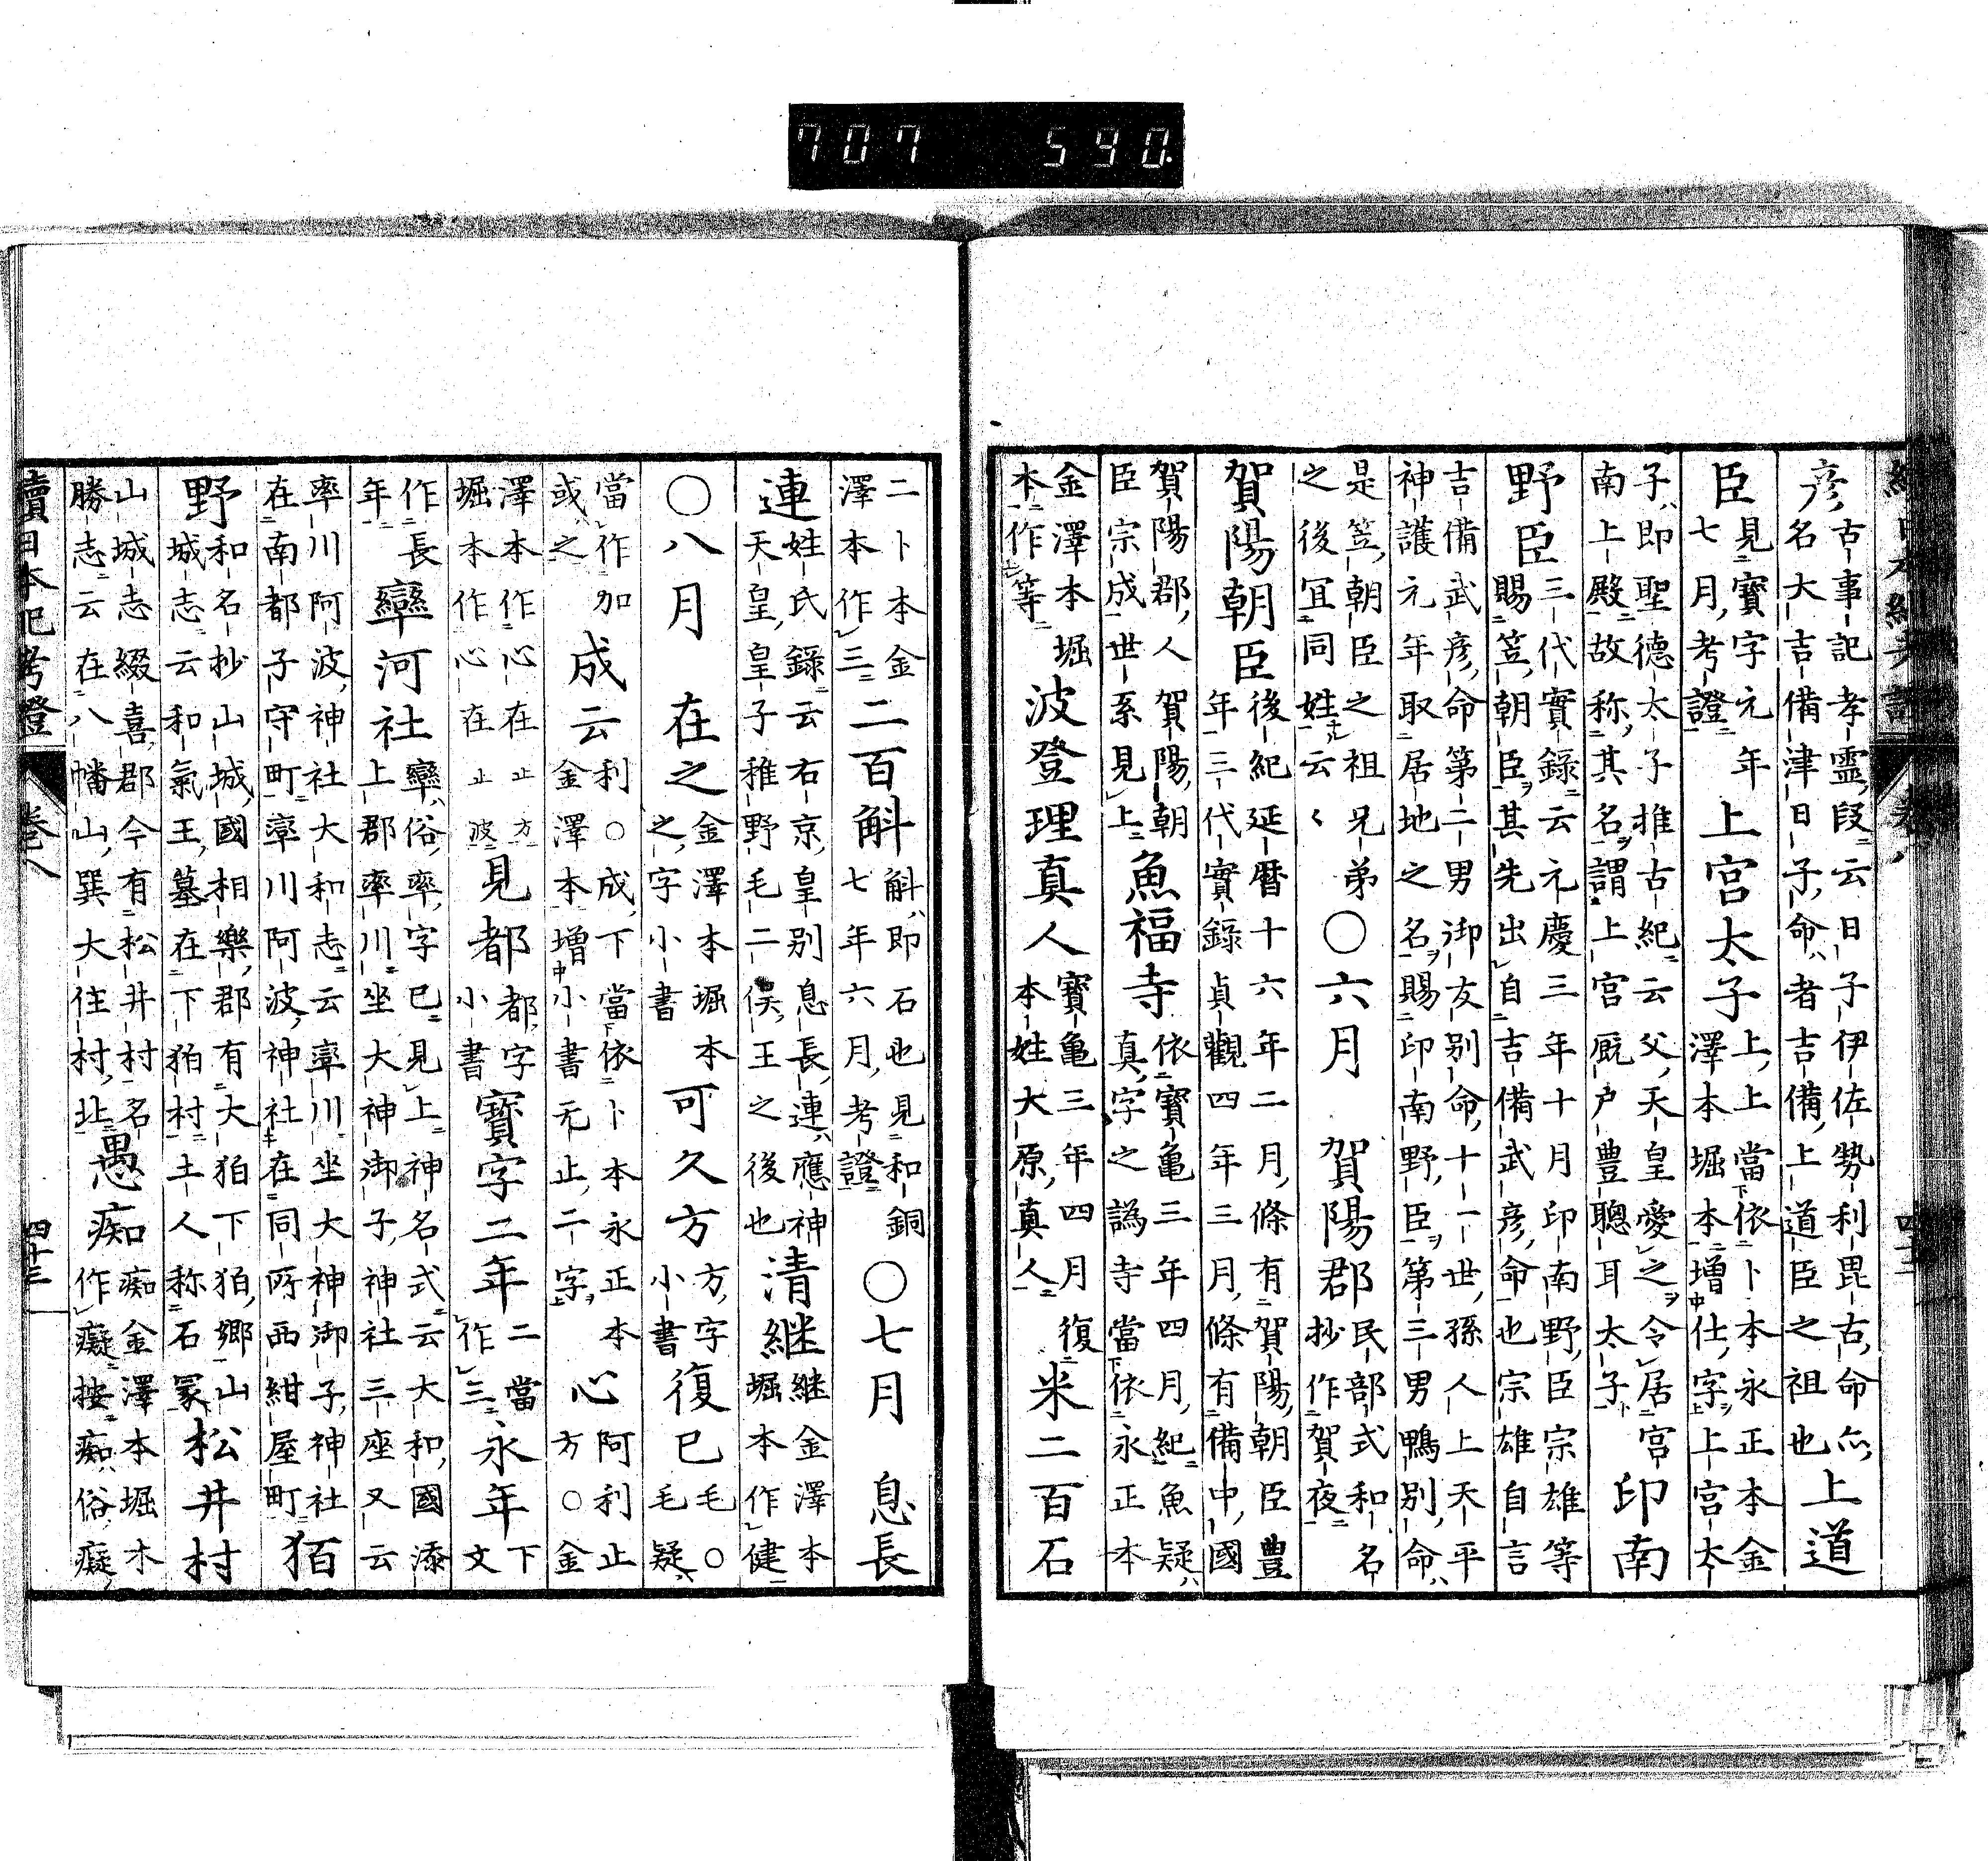 707 590.
彦古事記孝霊段云日子伊佐勢利毘古命亦
名大吉備津日子命者吉備上道臣之祖也上道
臣見寶字元年
七月考證上宮太子上上當依卜本永正本金
澤本堀本增仕字上宮太
子即聖德太子推古紀云父天皇愛之令居宮
南上殿故称其名謂上宮厩戸豊聰耳太子印南
野臣三代實錄云元慶三年十月印南野臣宗雄等
賜笠朝臣其先出自吉備武彦命也宗雄自言
吉備武彦命第二男御友別命十一世孫人上天平
神護元年取居地之名賜印南野臣第三男鴨別命
是笠朝臣之祖兄弟
之後宜同姓云〻〇六月 賀陽郡民部式和名
抄作賀夜
賀陽朝臣後紀延曆十六年二月條有賀陽朝臣豊
年三代實錄貞觀四年三月條有備中國
賀陽郡人賀陽朝
臣宗成世系見上魚福寺依寶亀三年四月紀魚疑
真字之譌寺當依永正本
金澤本堀
本作等波登理真人寶亀三年四月復
本姓大原真人米二百石
續日本紀考證 卷八 四十三
二卜本金
澤本作三二百斛斛即石也見和銅
七年六月考證〇七月 息長
連姓氏錄云右京皇別息長連應神
天皇皇子稚野毛二俣王之後也清継継金澤本
堀本作健
〇八月 在之金澤本堀本
之字小書可久方方字
小書復已毛〇
毛疑
當作加
或之成云利〇成下當依卜本永正本
金澤本增小書元止二字心阿利止
方〇金
澤本作心在止方
堀本作心在止波見都都字
小書寶字二年二當
作三永年下
文
作長
年㝈河社㝈俗率字已見上神名式云大和國添
上郡率川坐大神御子神社三座又云
率川阿波神社大和志云率川坐大神御子神社
在南都子守町率川阿波神社在同所西紺屋町狛
野和名抄山城國相樂郡有大狛下狛郷山
城志云和氣王墓在下狛村土人称石冢松井村
山城志綴喜郡今有松井村名
勝志云在八幡山巽大住村北愚痴痴金澤本堀本
作癡按痴俗癡